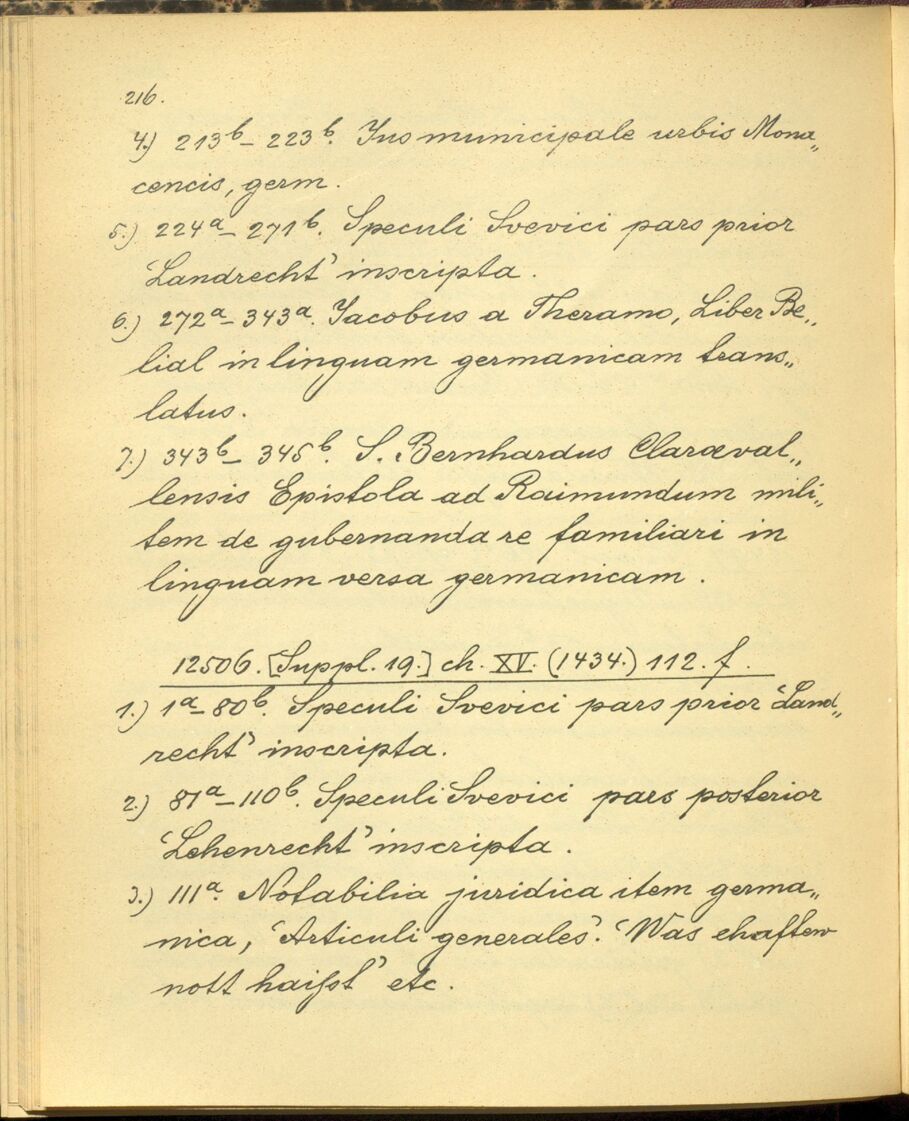 216.
4.) 213b_ 223b. Jus municipale urbis Mona„
cencis, germ.
5.) 224a_ 271b. Speculi Svevici pars prior
‘Landrecht’ inscripta.
6.) 272a_ 343a. Jacobus a Theramo, Liber Be„
lial in linguam germanicam trans„
latus.
7.) 343b_ 345b. S. Bernhardus Claræval„
lensis Epistola ad Raimundum mili„
tem de gubernanda re familiari in
linguam versa germanicam.
12506. [Suppl. 19.] ch. XV. (1434.) 112. f.
1.) 1a_ 80b. Speculi Svevici pars prior ‘Land„
recht’ inscripta.
2.) 81a_ 110b. Speculi Svevici pars posterior
‘Lehenrecht’ inscripta.
3.) 111a. Notabilia juridica item germa„
nica, ‘Articuli generales’. ‘Was ehaften
nott haißt’ etc.